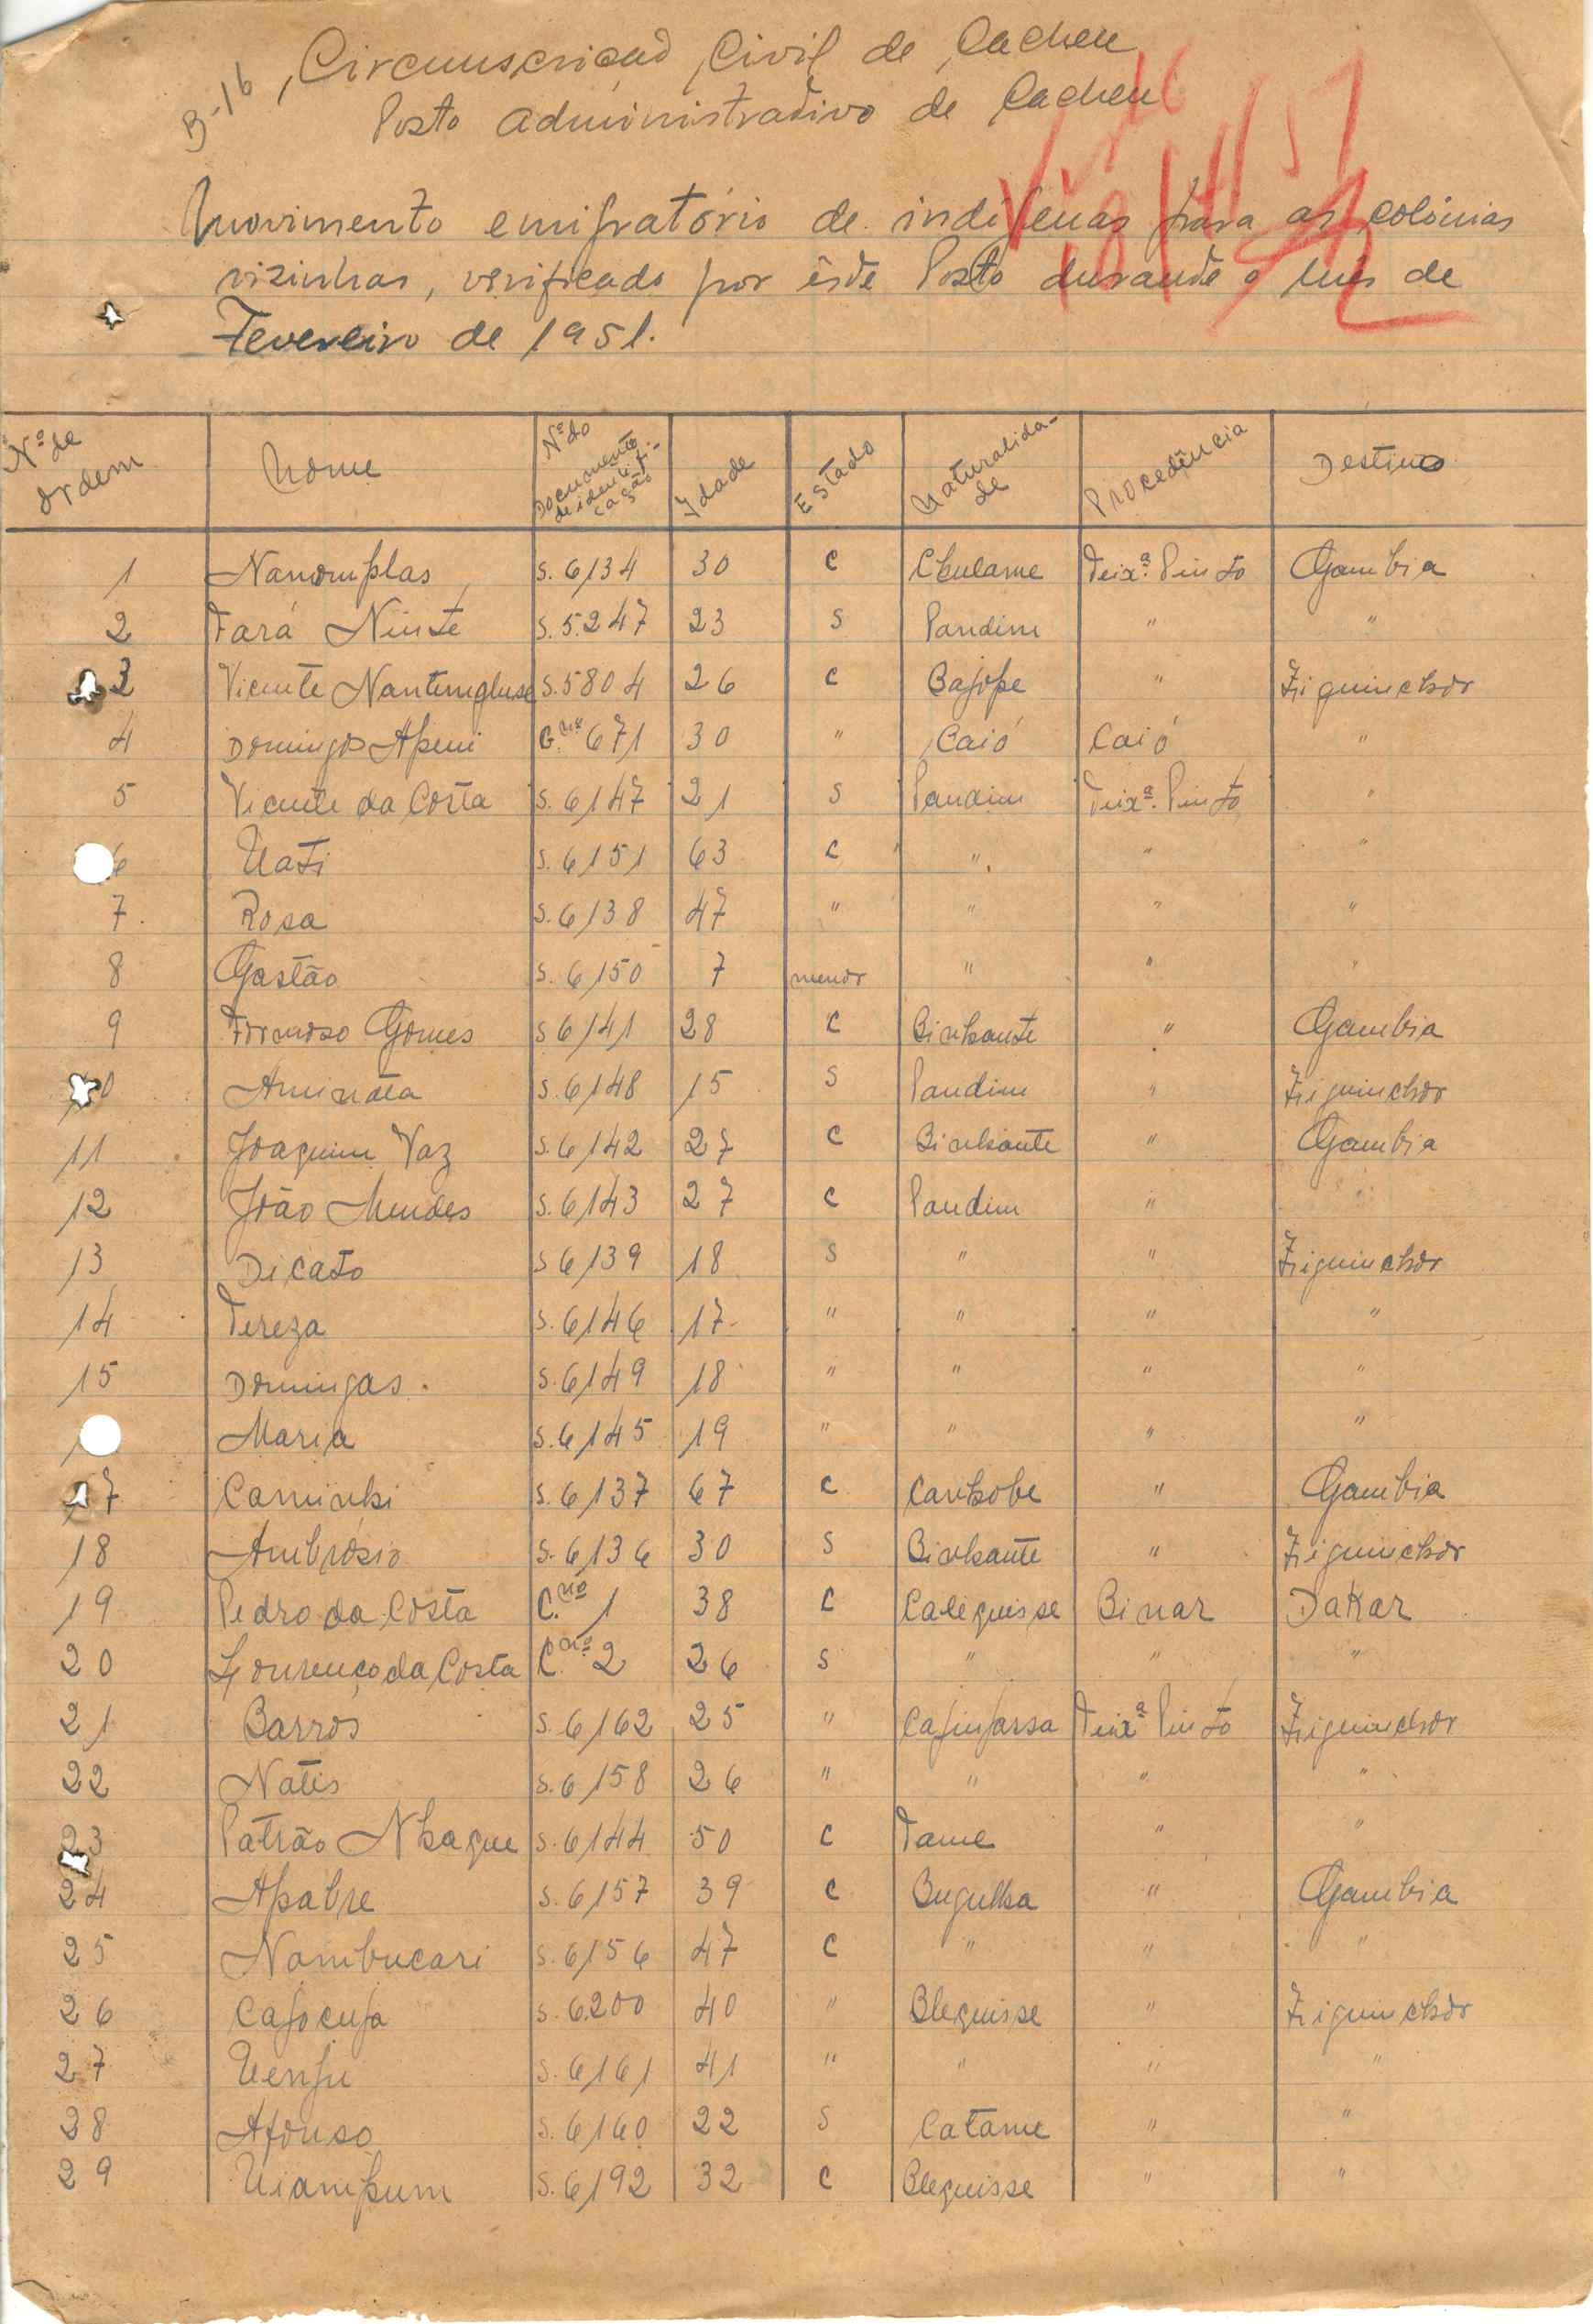 B-16
Circunscrição Civil de Cacheu
Posto Administrativo de Cacheu
Movimento emigratório de indígenas para as colónias
vizinhas, verificado por êste Posto durante o mês de
Fevereiro de 1951.
Nº de ordem Nome Nº do Documento de identificação Idade Estado Naturalidade Procedência Destino
1 Nanomplas S. 6134 30 C Chulame Teixª. Pinto Gambia
2 Fará Ninte S. 5.247 23 S Pandim " "
3 Vicente S. 5804 26 C Bajope " Ziguinchor
4 Domingos Apeni C. nº 671 30 " Caió Caió "
5 Vicente da Costa S. 6147 21 S Pandim Teixª. Pinto "
6 Uati S. 6151 63 C " " "
7 Rosa S. 6138 47 " " " "
8 Gastão S. 6150 7 menor " " "
9 Formoso Gomes S 6141 28 C Binhante " Gambia
10 Aminata S. 6148 15 S Pandim " Ziguinchor
11 Joaquim Vaz S. 6142 27 C Binhante " Gambia
12 João Mendes S. 6143 27 C Pandim " "
13 Dicato S 6139 18 S " " Ziguinchor
14 Tereza S. 6146 17 " " " "
15 Domingas. S. 6149 18 " " " "
Maria S. 6145 19 " " " "
17 Caminhi S. 6137 67 C Canhobe " Gambia
18 Ambrósio S. 6136 30 S Binhante " Ziguinchor
19 Pedro da Costa C. nº 1 38 C Caleguisse Binar Dakar
20 Lourenço da Costa C. nº 2 26 S " " "
21 Barros S. 6162 25 " Cajinjassa Teixª Pinto Ziguinchor
22 Natis S. 6158 26 " " " "
23 Patrão Nhaque S. 6144 50 C Tame " "
24 Apabre S. 6157 39 C Bugulha " Gambia
25 Nambucari S. 6156 47 C " " "
26 Cajocuja S. 6200 40 " Bleguisse " Ziguinchor
27 Uenju S. 6161 41 " " " "
28 Afonso S. 6160 22 S Catame " "
29 Uiampum S. 6192 32 C Bleguisse " "